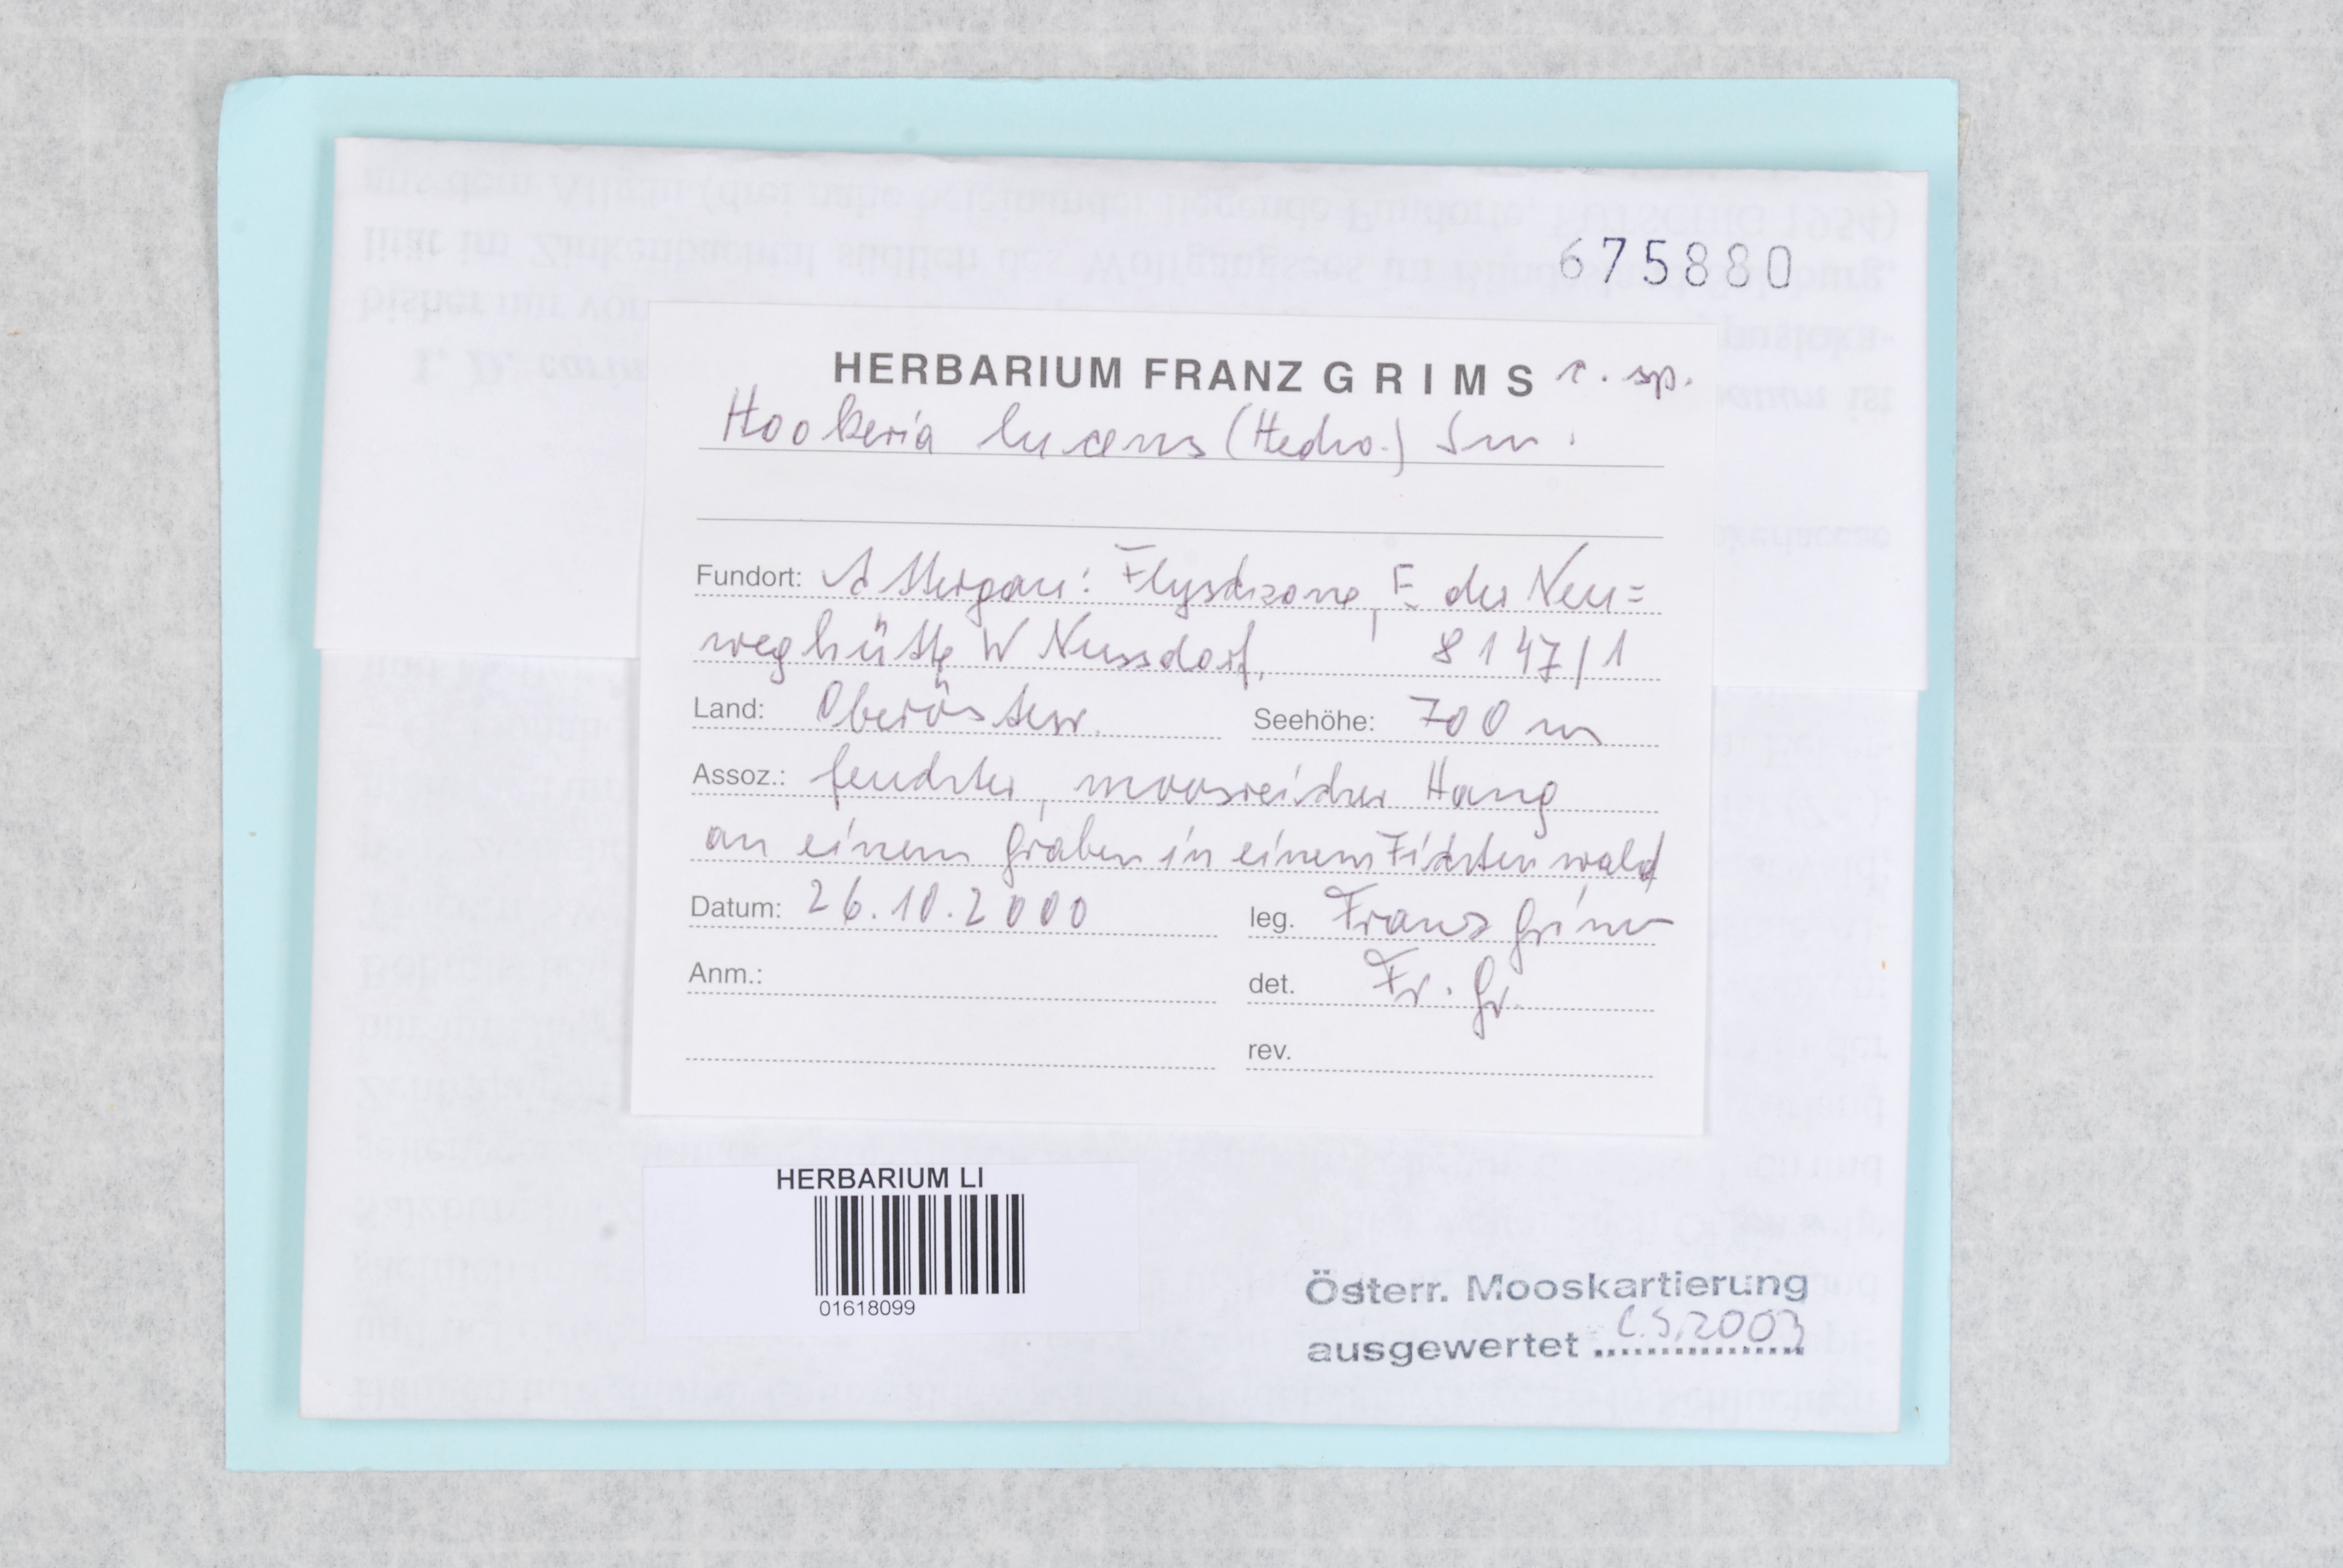 675880
HERBARIUM FRANZ GRIMS c. sp.
Hookeria lucens (Hedw.) Sm.
Fundort: Attergau: Flyschzone, E der Neu=
weghütte W Nussdorf, 8147/1
Land: Oberösterr. Seehöhe: 700 m
Assoz.: feuchter, moosreicher Hang
an einem Graben in einem Fichtenwald
Datum: 26.10.2000 leg. Franz Grims
Anm.: det. Fr. Gr.
rev.
HERBARIUM LI
01618099
Österr. Mooskartierung
ausgewertet C.S. 2003